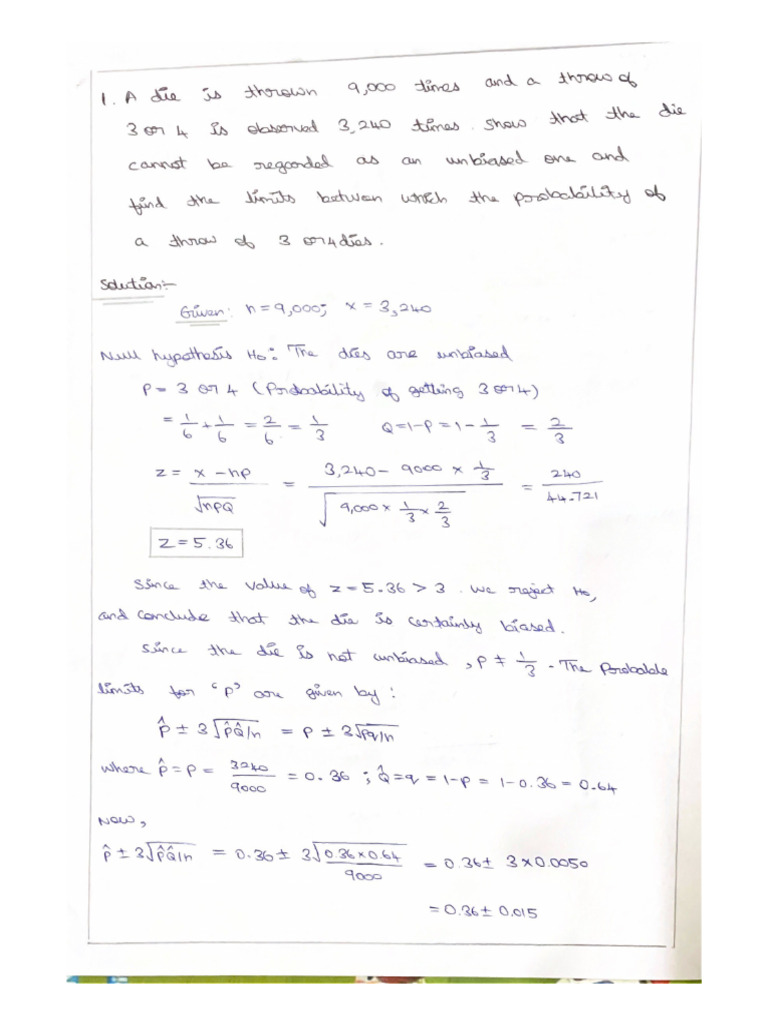 1. A die is thrown 9,000 times and a throw of
3 or 4 is observed 3,240 times. Show that the die
cannot be regarded as an unbiased one and
find the limits between which the probability of
a throw of 3 or 4 dies.
Solution:-
Given: n = 9,000; x = 3,240
Null hypothesis H₀: The dies are unbiased
P = 3 or 4 (Probability of getting 3 or 4)
= 1/6 + 1/6 = 2/6 = 1/3 Q = 1 - P = 1 - 1/3 = 2/3
z = (x - np)/√nPQ = (3,240 - 9000 × 1/3)/√(9,000 × 1/3 × 2/3) = 240/44.721
Z = 5.36
Since the value of z = 5.36 > 3. we reject H₀,
and conclude that the die is certainly biased.
Since the die is not unbiased, P ≠ 1/3 - The Probable
limits for 'p' are given by:
P̂ ± 3√P̂Q̂/n = p ± 3√pq/n
where P̂ = p = 3240/9000 = 0.36; Q̂ = q = 1 - p = 1 - 0.36 = 0.64
Now,
P̂ ± 3√P̂Q̂/n = 0.36 ± 3√(0.36 × 0.64)/9000 = 0.36 ± 3 × 0.0050
= 0.36 ± 0.015